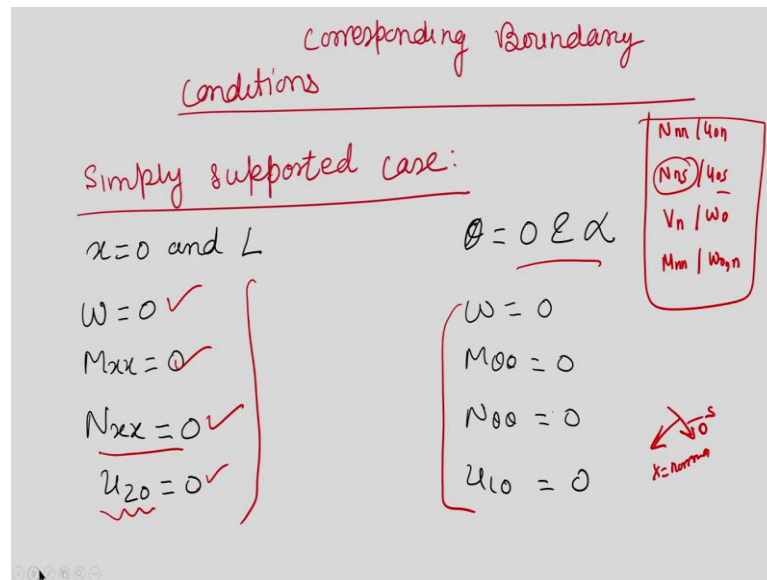 Corresponding Boundary
Conditions
Simply supported case:
x=0 and L
w=0 ✓
Mxx=0 ✓
Nxx=0 ✓
u20=0 ✓
θ=0 & α
w=0
Mθθ=0
Nθθ=0
u10=0
Nnn/u0n
Nns/u0s
Vn/w0
Mnn/w0,n
s
θ